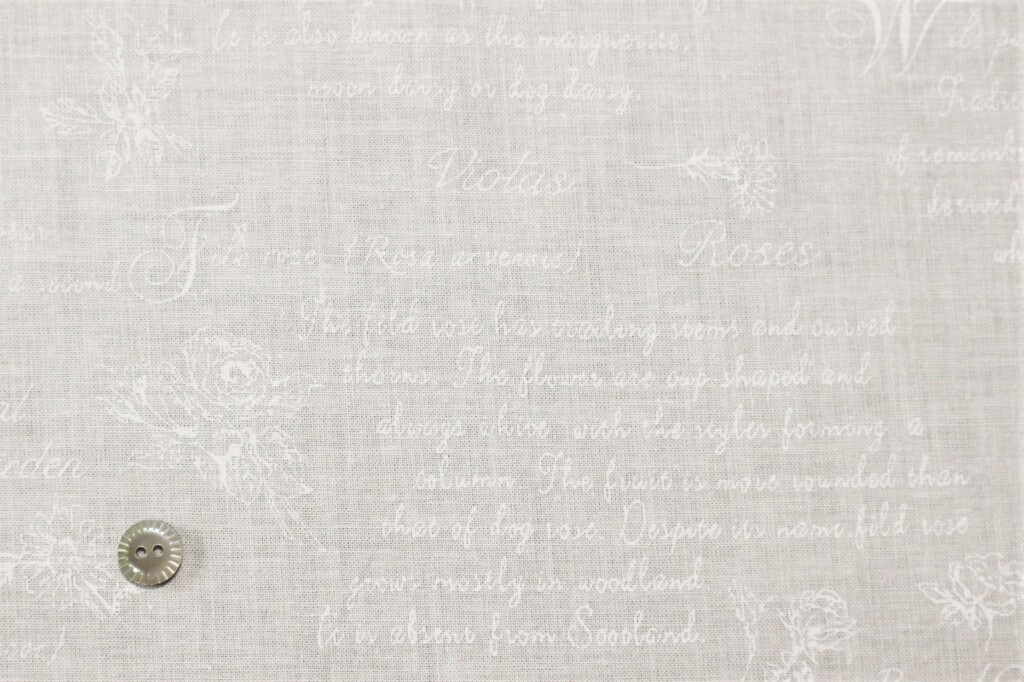 It is also known as the marguerite,
moon daisy or dog daisy.
Violas
Roses
Field rose (Rosa arvensis)
The field rose has trailing stems and curved
thorns. The flower are cup shaped and
always white, with the styles forming a
column. The fruit is more rounded than
that of dog rose. Despite its name field rose
grows mostly in woodland.
It is absent from Scotland.
a second
Tradit
of rememb
derived
wh
arden